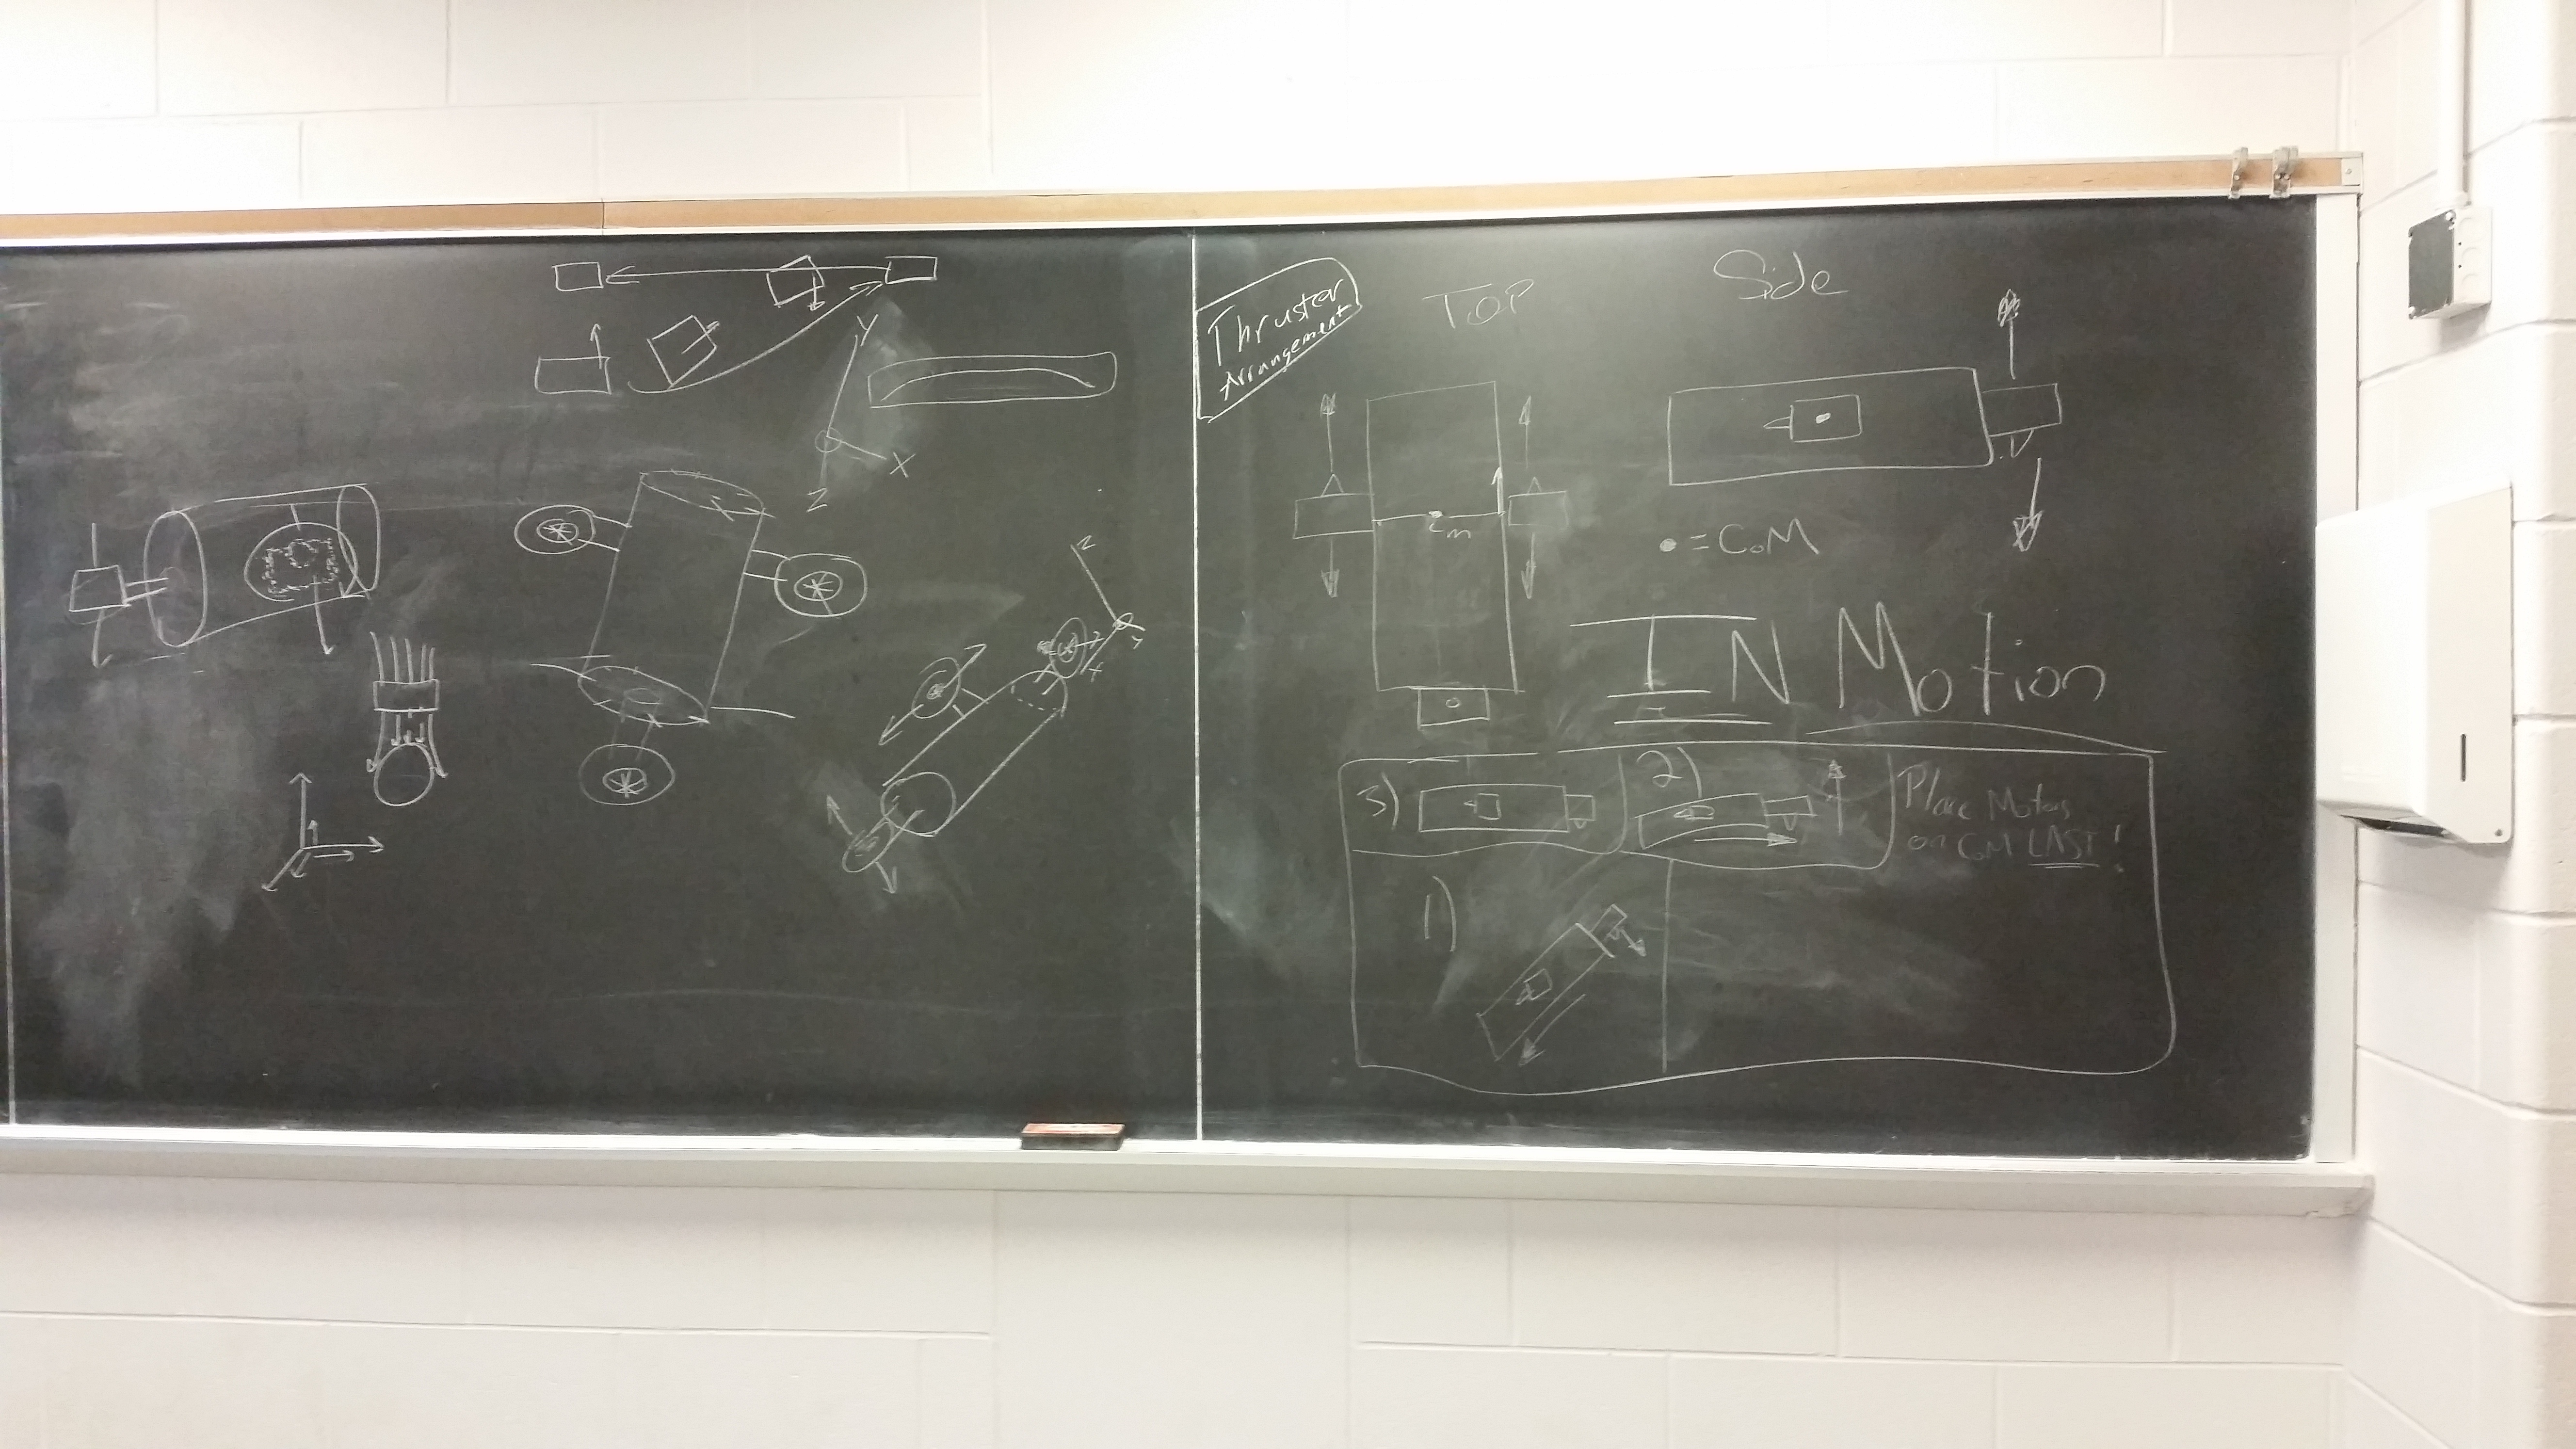 Y
X
Z
Z
Thruster
Arrangement
TOP
Side
Cm
• = CoM
IN Motion
3)
2)
Place Motors
on CoM LAST!
1)